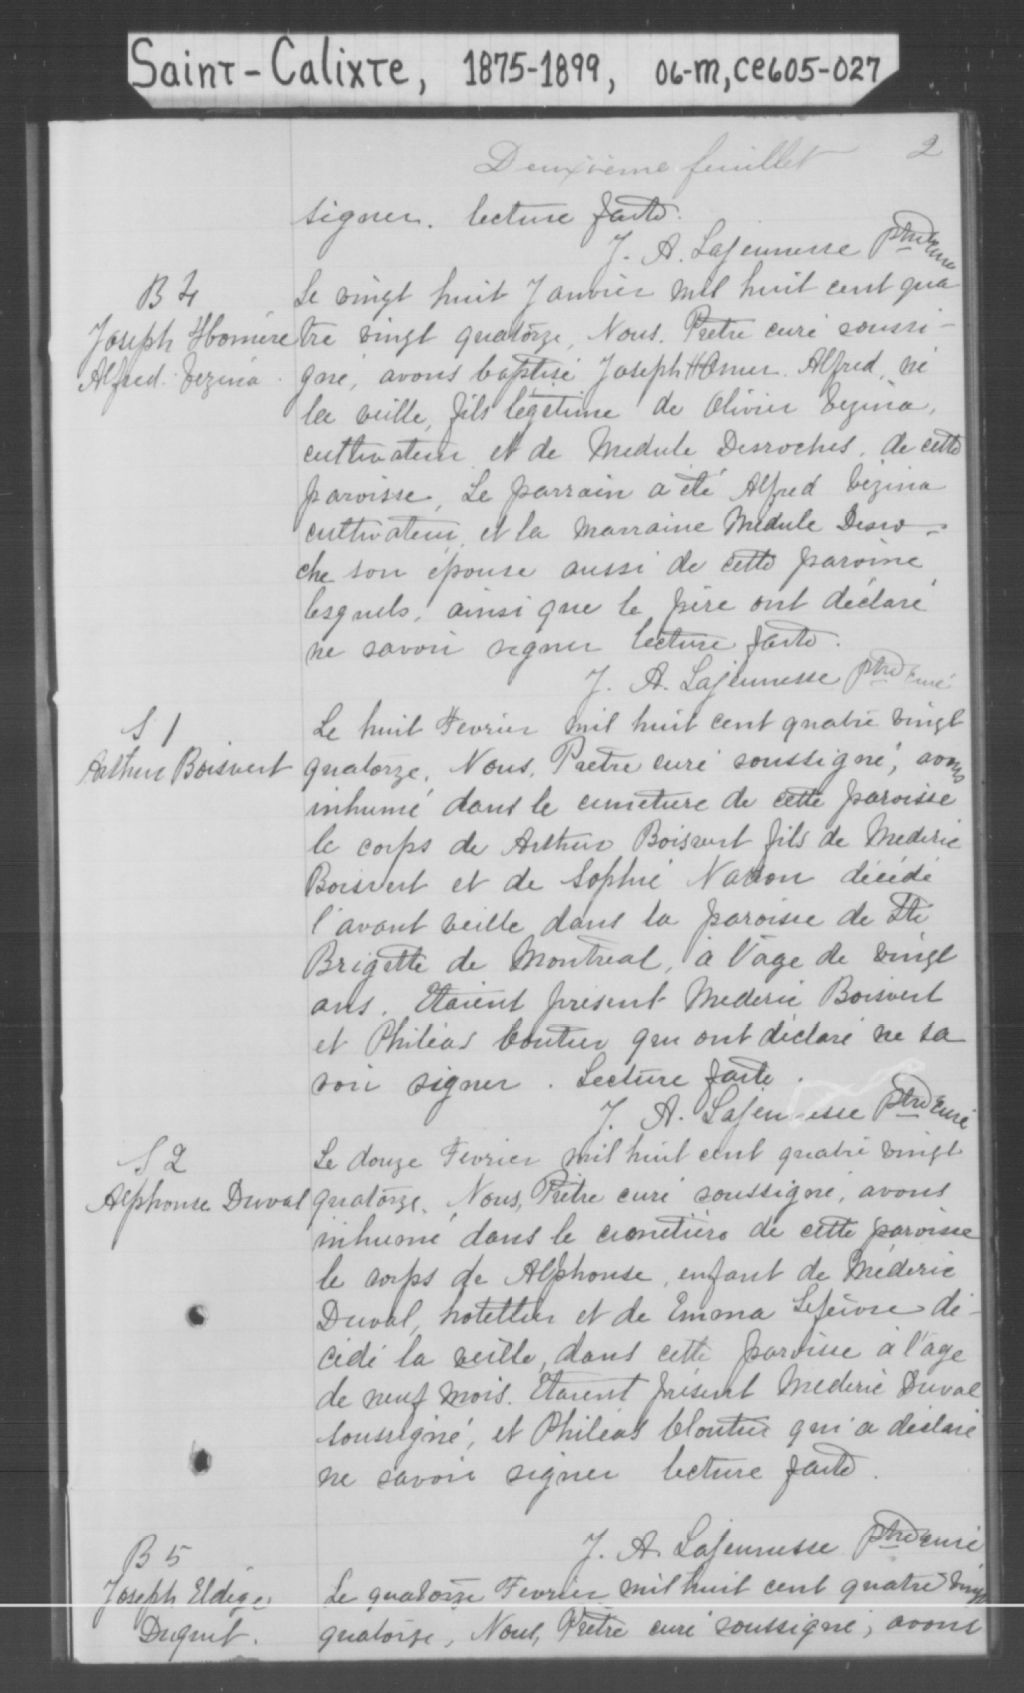 Saint-Calixte, 1875-1899, 06-M, CE605-027
Deuxième feuillet 2
signer. lecture faite.
J. A. Lajeunesse ptre curé
B 4
Joseph Homère
Alfred Vezina
Le vingt huit Janvier mil huit cent qua
tre vingt quatorze, Nous, Prêtre curé soussi-
gné, avons baptisé Joseph Omer Alfred, né
la veille, fils légitime de Olivier Vezina,
cultivateur et de Medule Desroches, de cette
paroisse, Le parrain a été Alfred Vézina
cultivateur, et la marraine Médule Desro-
che son épouse aussi de cette paroisse
lesquels, ainsi que le père ont déclaré
ne savoir signer lecture faite.
J. A. Lajeunesse ptre curé
S 1
Arthur Boisvert
Le huit Fevrier mil huit cent quatre vingt
quatorze, Nous, Prêtre curé soussigné, avons
inhumé dans le cimetière de cette paroisse
le corps de Arthur Boisvert fils de Mederic
Boisvert et de Sophie décédé
l'avant veille dans la paroisse de Ste
Brigette de Montreal, à l'âge de vingt
ans. Etaient présent Mederic Boisvert
et Philéas Coutier qui ont déclaré ne sa
voir signer. Lecture faite.
J. A. Lajeunesse ptre curé
S 2
Alphonse Duval
Le douze Fevrier mil huit cent quatre vingt
quatorze, Nous, Prêtre curé soussigné, avons
inhumé dans le cimetière de cette paroisse
le corps de Alphonse, enfant de Méderic
Duval, hotellier et de Emma Lefèvre dé-
cédé la veille, dans cette paroisse à l'age
de neuf mois. Etaient présent Mederic Duval
soussigné, et Philéas Cloutier qui a déclaré
ne savoir signer lecture faite.
J. A. Lajeunesse ptre curé
B 5
Joseph Eldége
Duquet.
Le quatorze Fevrier mil huit cent quatre vingt
quatorze, Nous, Prêtre curé soussigné, avons